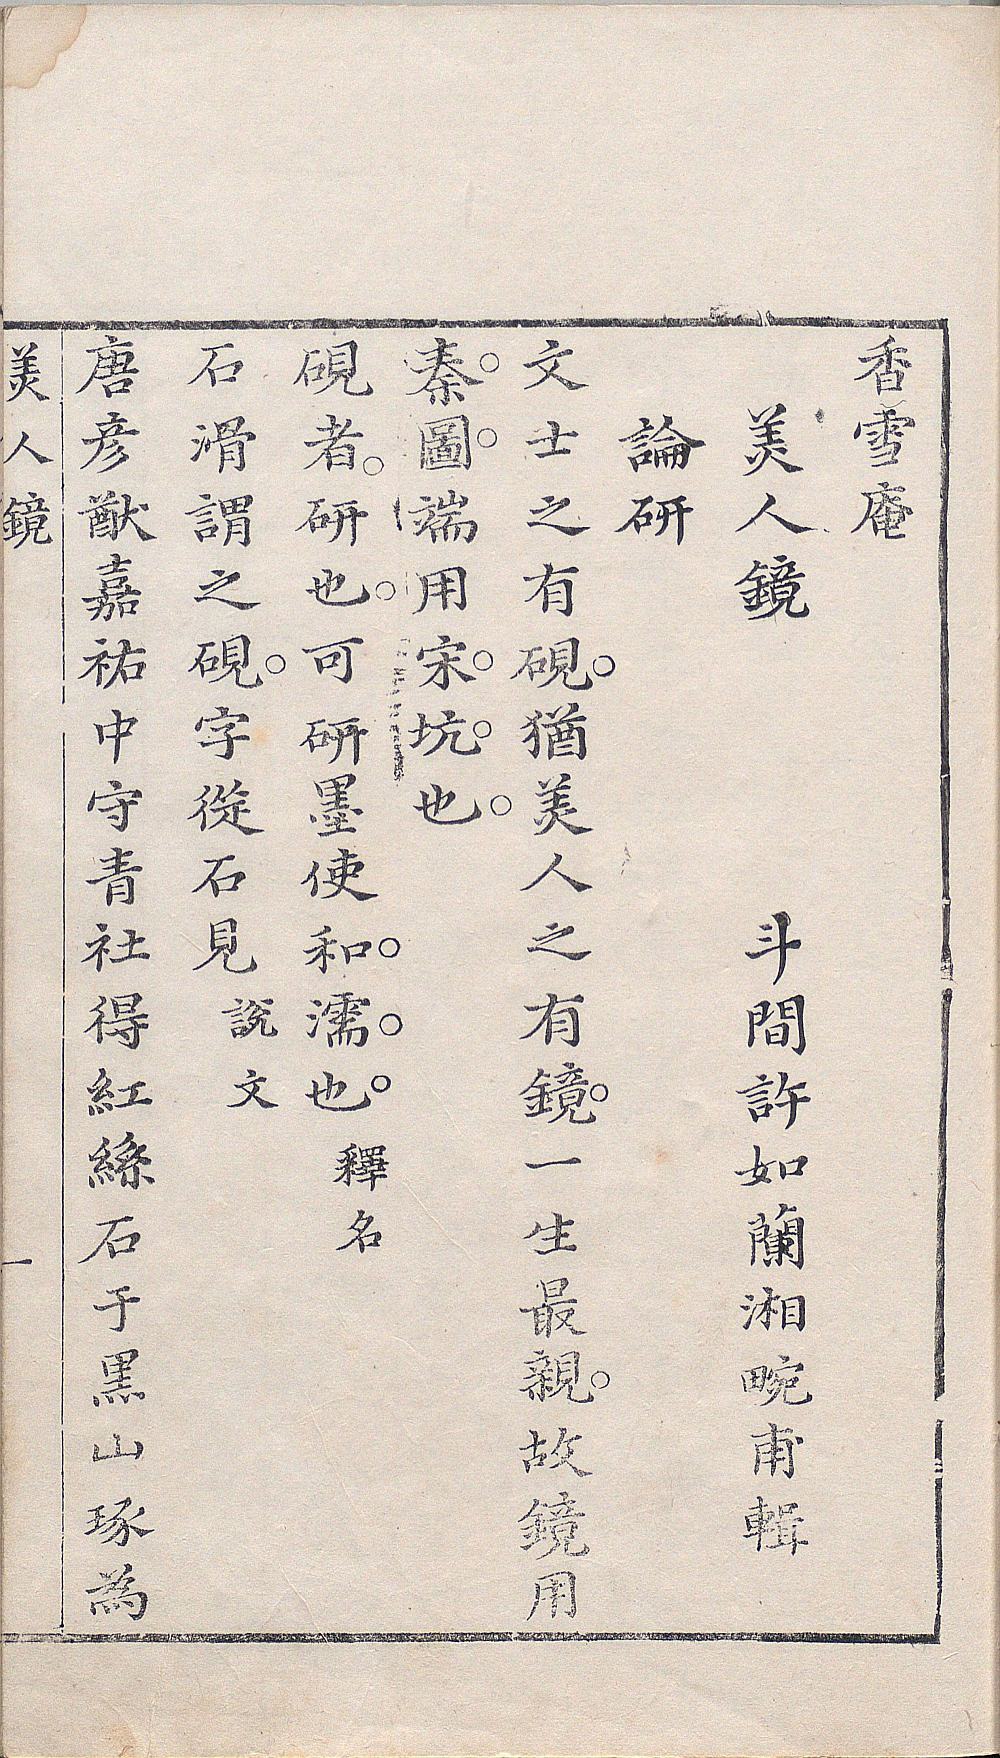 香雪庵
美人鏡　斗間許如蘭湘畹甫輯
論研
文士之有硯。猶美人之有鏡。一生最親。故鏡用
秦。圖。端用宋。坑。也。
硯者。研也。可研墨使和。濡。也。釋名
石滑謂之硯。字從石見說文
唐彥猷嘉祐中守青社得紅絲石于黒山琢為
美人鏡　一